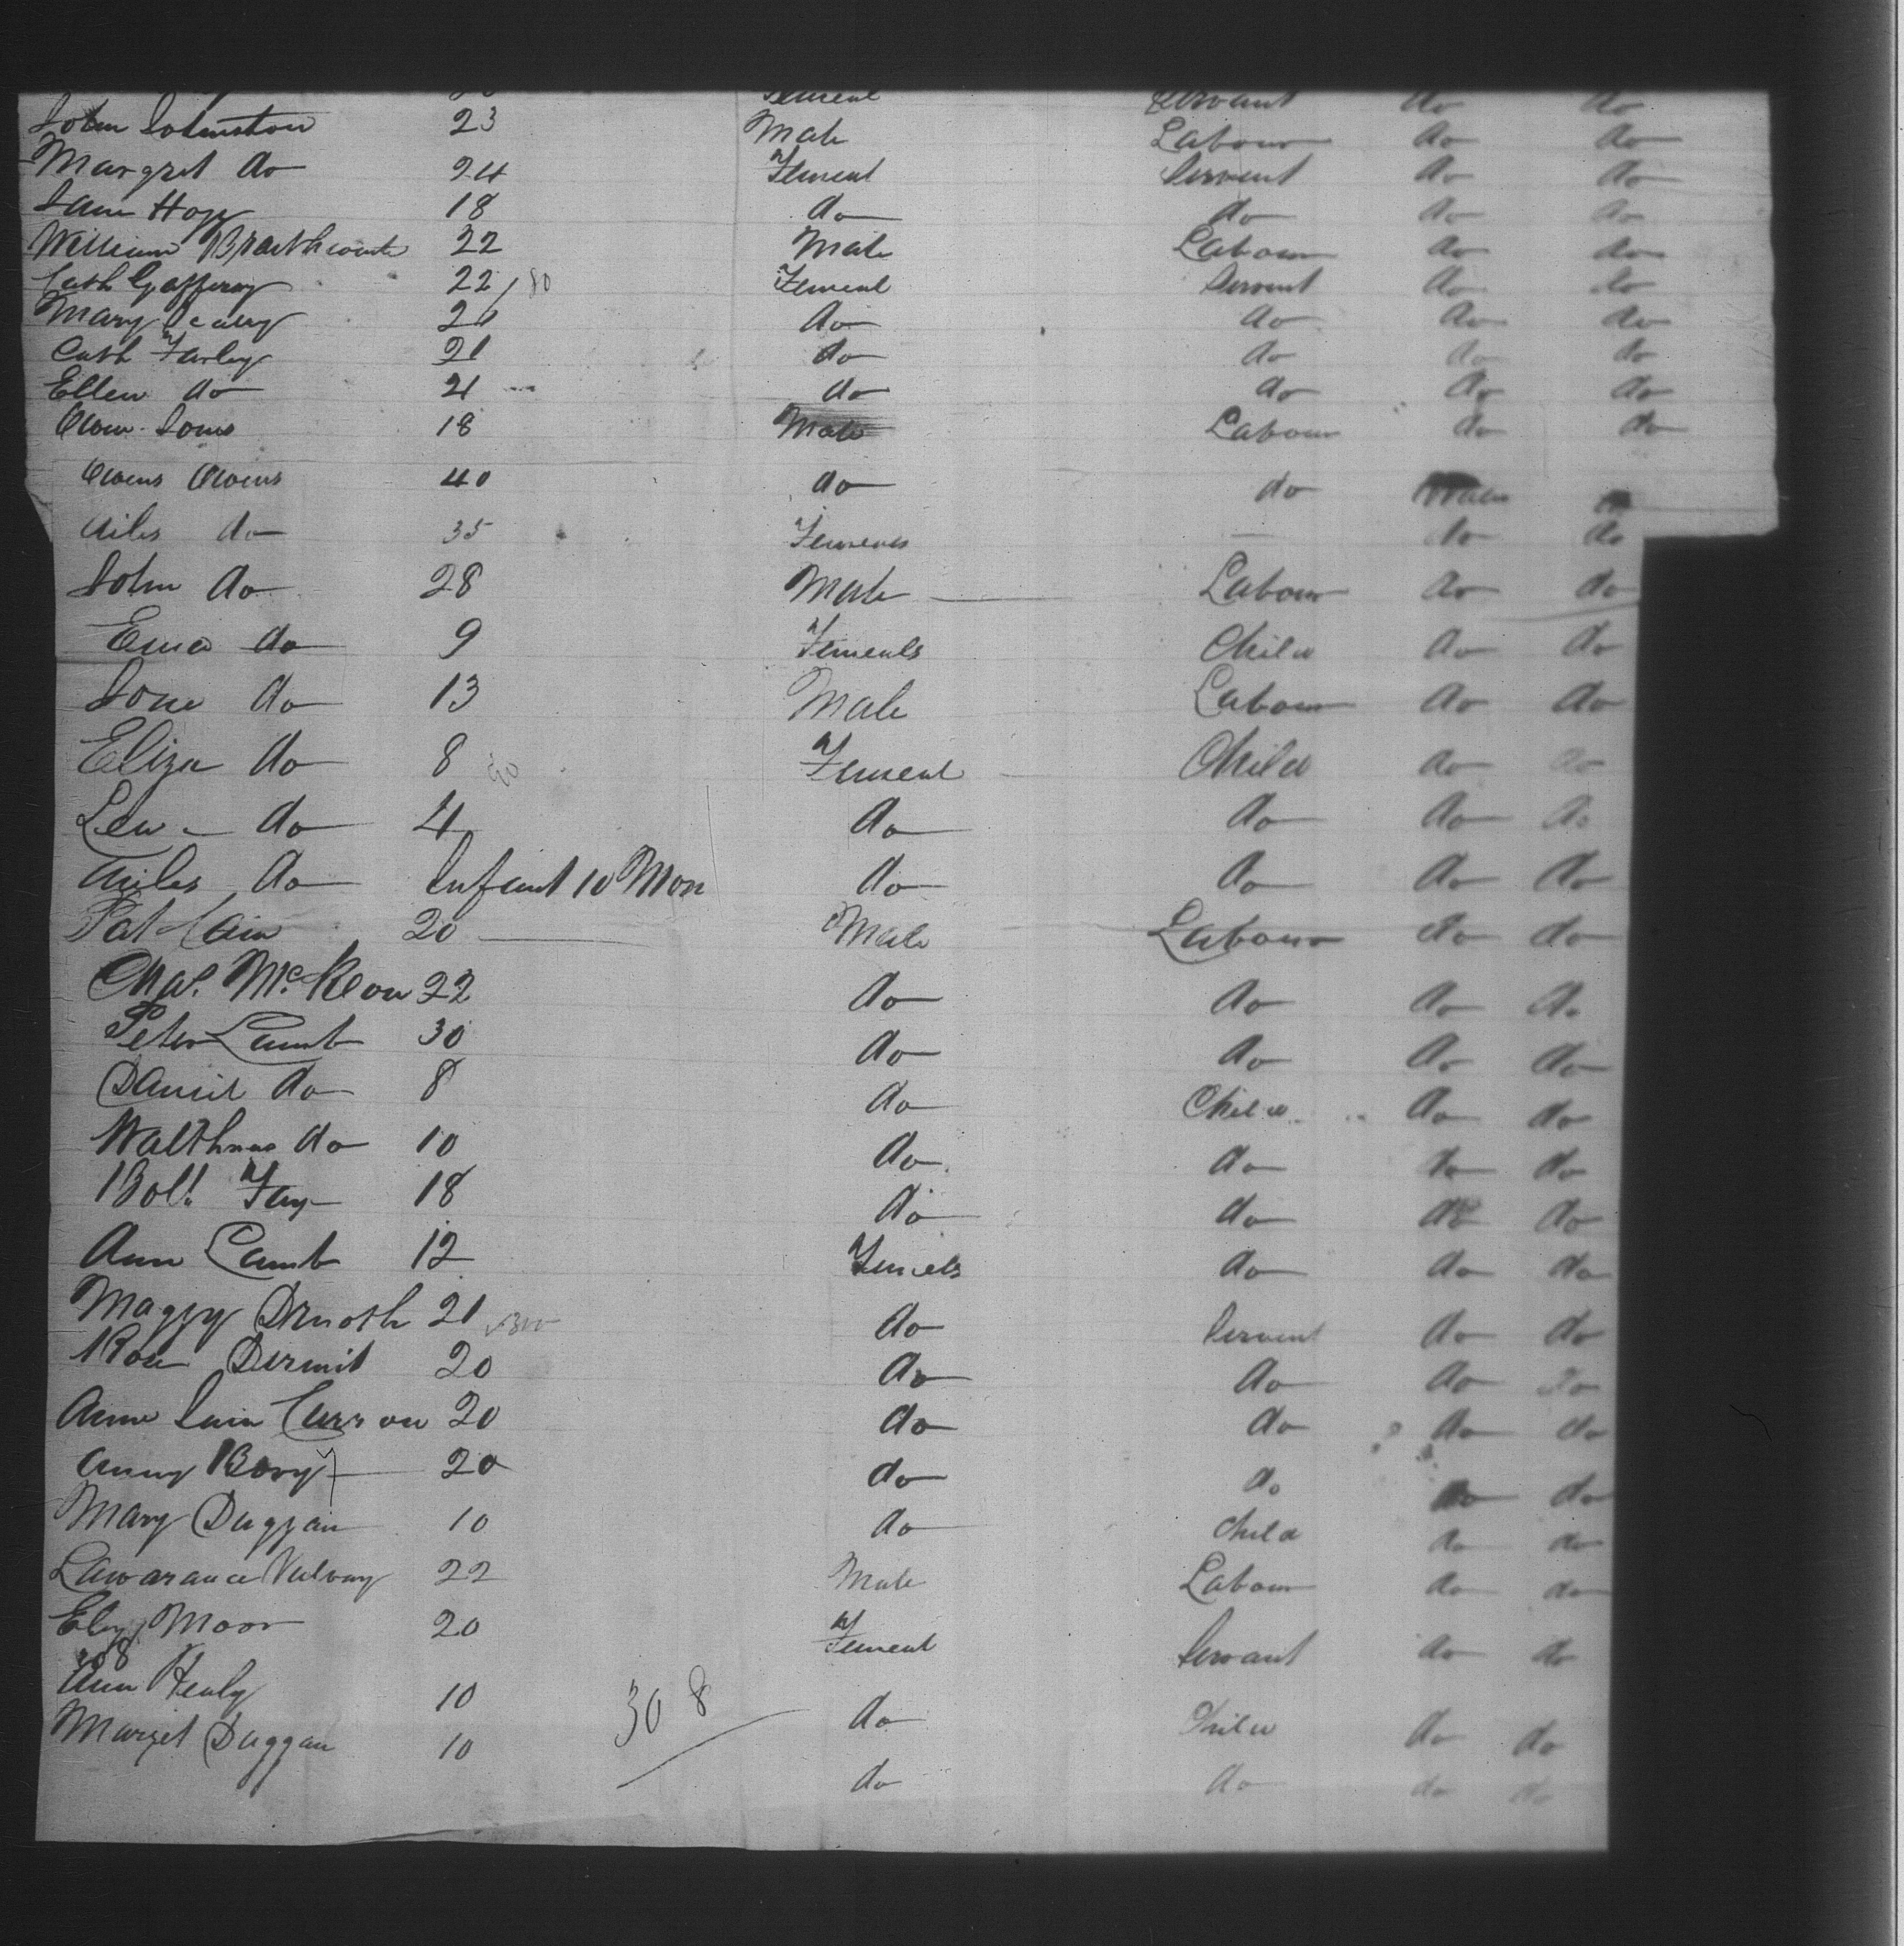 Servant do do
John Johnston 23 Male Labour do do
Margret do 24 Femeal Servent do do
Jane Hope 18 do do do do
William Brathwaite 22 Male Labour do do
Cath Gaffeny 22 80 Femeal Servent do do
Mary 21 do do do do
Cath Farley 21 do do do do
Ellen do 21 do do do do
Owen Jones 18 Male Labour do do
Owens Owens 40 do do Wales
do 35 do do
John do 28 Male Labour do do
Ema do 9 Femeals Child do do
Jone do 13 Male Labour do do
Eliza do 8 90 Femeal Child do do
Lew do 4 do do do do
do Infant 10 Mon do do do do
Pat Cain 20 Male Labour do do
Chas. McKeon 22 do do do do
Peter Lamb 30 do do do do
Daniel do 8 do Child do do
do 10 do do do do
Fay 18 do do do do
Ann Lamb 12 Femels do do do
Maggy 21 do Servent do do
Rose Dermit 20 do do do do
Anne Curron 20 do do do do
Anny 20 do do do do
Mary Duggan 10 do Child do do
Lawarance 22 Male Labour do do
Moor 20 Femeal Servant do do
308
Ann Healy 10 308 do Child do do
Marget Duggan 10 do do do do